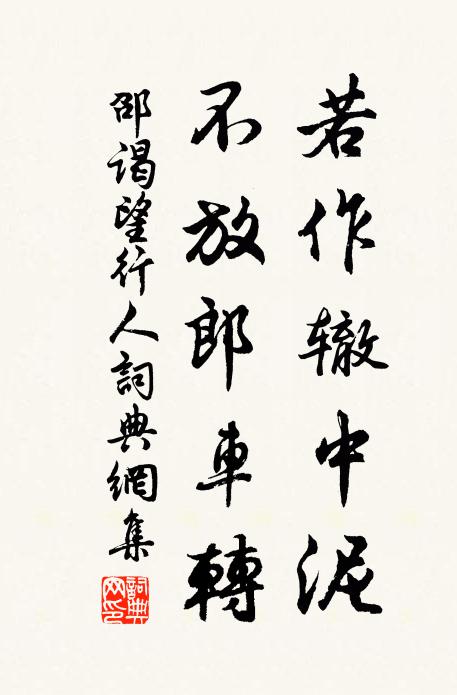 若作辙中泥
不放郎車轉
邵谒望行人詞典網集
詞典網印